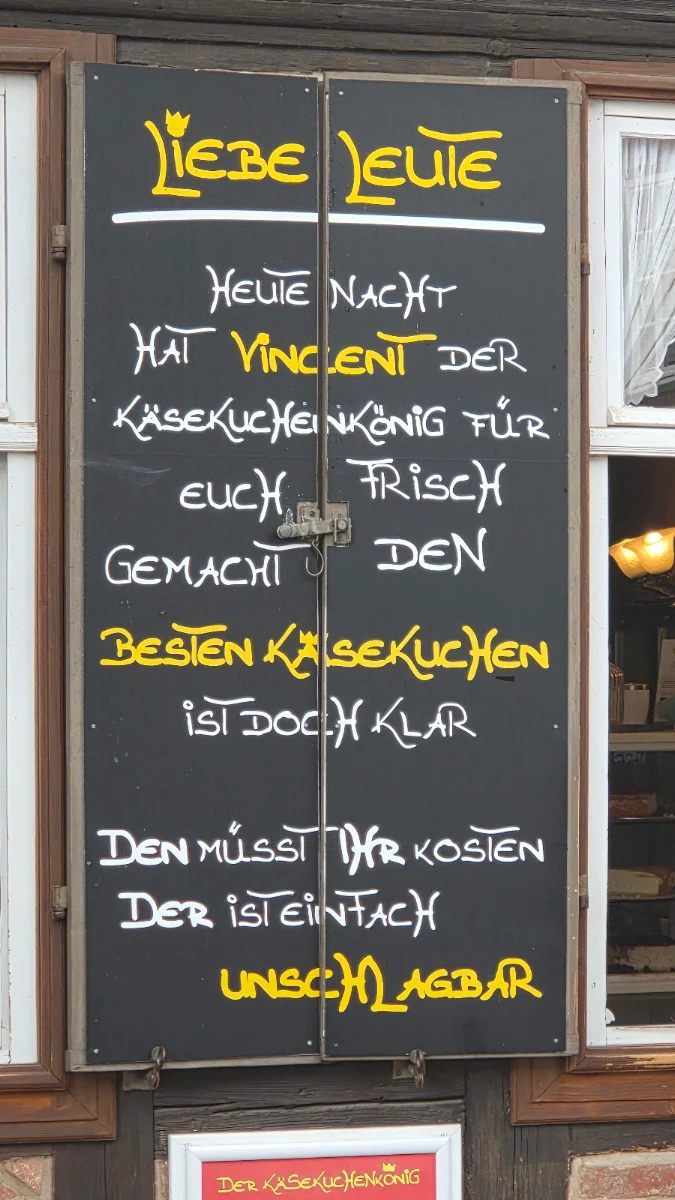 LIEBE LEUTE
HEUTE NACHT
HAT VINCENT DER
KÄSEKUCHENKÖNIG FÜR
EUCH FRISCH
GEMACHT DEN
BESTEN KÄSEKUCHEN
IST DOCH KLAR
DEN MÜSST IHR KOSTEN
DER IST EINFACH
UNSCHLAGBAR
DER KÄSEKUCHENKÖNIG